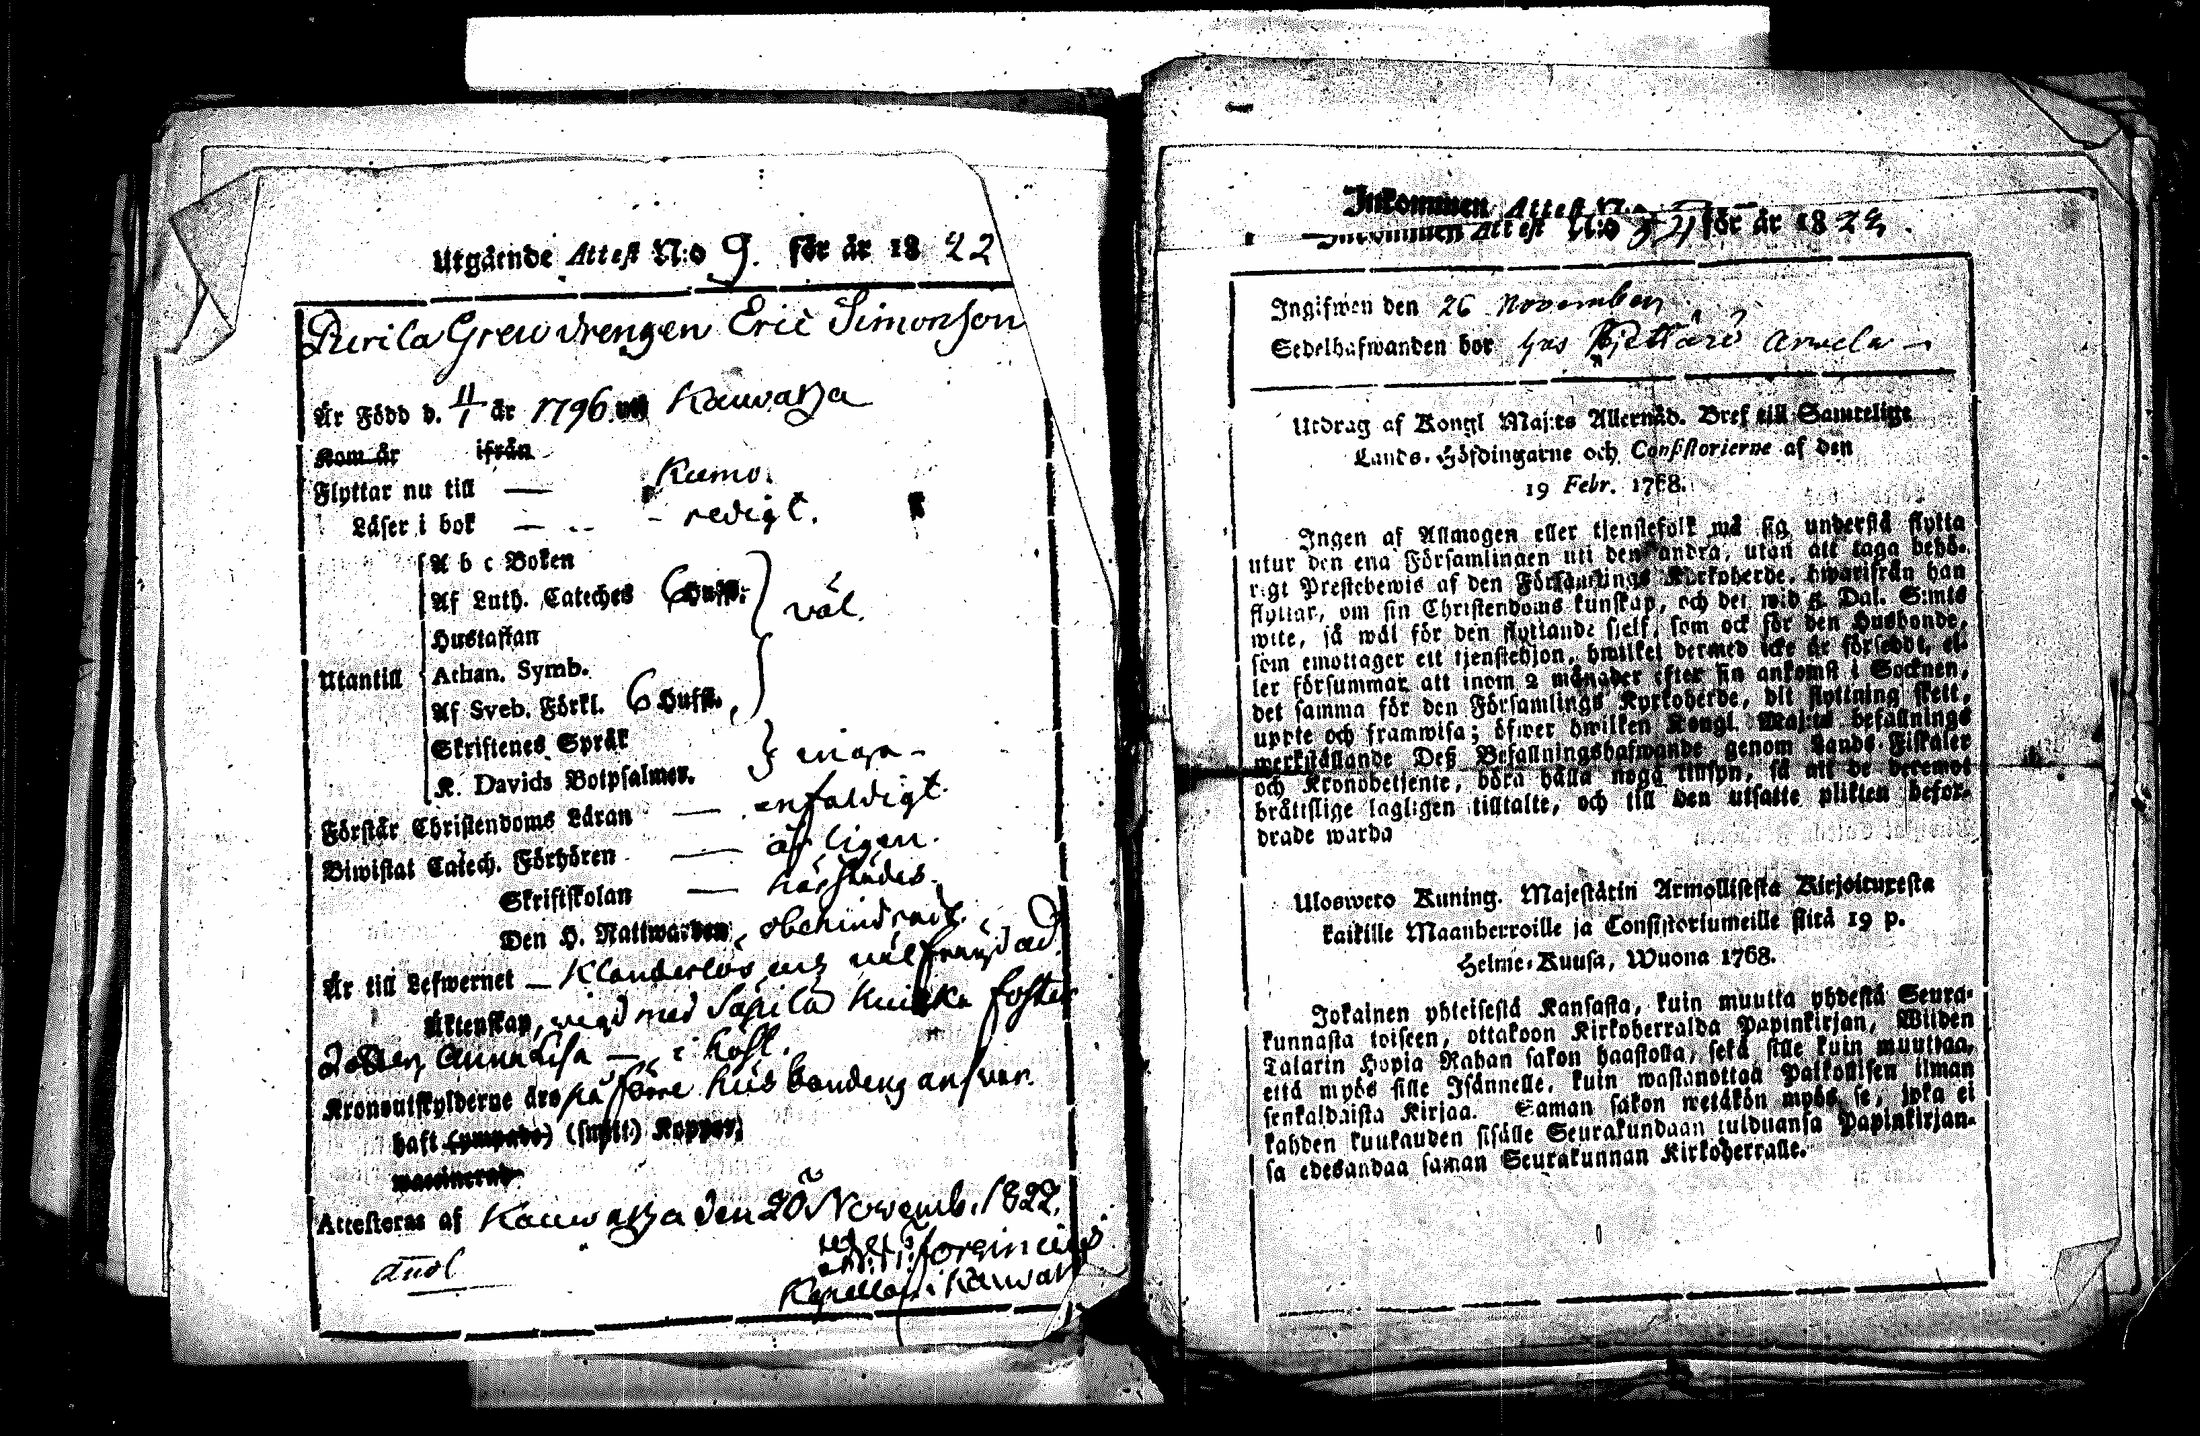 Utgående Attest N:o 9. för år 1822
Purila Grewdrengen Eric Simonson
Är Född d. 11/1 år 1796. Kauvatza
Kom år ifrån
Flyttar nu till — Kumo.
Läser i bok — redigt.
A b c Boken
Af Luth. Cateches 6 Hufst.
väl.
Hustaflan
Athan. Symb.
Utantill
Af Sveb. Förkl. 6 Hufst.
Skriftenes Språk
inga
K. Davids Botpsalmer.
Förstår Christendoms Läran — enfaldigt.
Biwistat Catech. Förhören —
Skriftskolan —
Den H. Nattwarden, obehindradt.
Är till Lefwernet — Klanderlös och välfrägdad.
Äktenskap, vigd med Säpilä foster
dottren Anna Lisa — i höst.
Kronoutskylderne äro på förre husbondens answar.
haft (ympade) (smitt.) Koppor,
waccinerad
Attesteras af Kauvatza den 20 Novemb. 1822.
Kapellan i Kauvatz
Inkommen Attest N:o
Inkommen Attest N:o 34 för år 1822.
Ingifwen den 26 November
Sedelhafwanden bor hos Arvela —
Utdrag af Kongl Maj:ts Allernåd. Bref till Samtelige
Lands-Höfdingarne och Consistorierne af den
19 Febr. 1768.
Ingen af Allmogen eller tjenstefolk må sig understå flytta
utur den ena Församlingen uti den andra, utan att taga behö-
rigt Prestebewis af den Församlings Kyrkoherde, hwarifrån han
flyttar, om sin Christendoms kunskap, och det wid 5 Dal. S:mts
wite, så wäl för den flyttande sjelf, som ock för den Husbonde,
som emottager ett tjenstehjon, hwilket dermed icke är försedt, el-
ler försummar att inom 2 månader efter sin ankomst i Socknen,
det samma för den Församlings Kyrkoherde, dit flyttning skett,
uppte och framwisa; öfwer hwilken Kongl. Maj:ts befallnings
werkställande Deß Befallningshafwande genom Lands-Fiskaler
och Kronobetjente, böra hålla noga tillsyn, så att de deremot
bråttslige lagligen tilltalte, och till den utsatte plikten befor-
drade warda
Uloswero Kuning. Majestätin Armollisesta Kirjoituxesta
kaikille Maanherroille ja Consistoriumeille siitä 19 p.
Helme-Kuusa, Wuona 1768.
Jokainen yhteisestä Kansasta, kuin muutta yhdestä Seura-
kunnasta toiseen, ottakoon Kirkoherralda Papinkirjan, Wiiden
Talarin Hopia Rahan sakon haastolla, sekä sille kuin muuttaa,
että myös sille Isännelle, kuin wastanottaa Palkollisen ilman
senkaldaista Kirjaa. Saman sakon wetäkön myös se, joka ei
kahden kuukauden sisälle Seurakundaan tulduansa Papinkirjan-
sa edesandaa saman Seurakunnan Kirkoherralle.